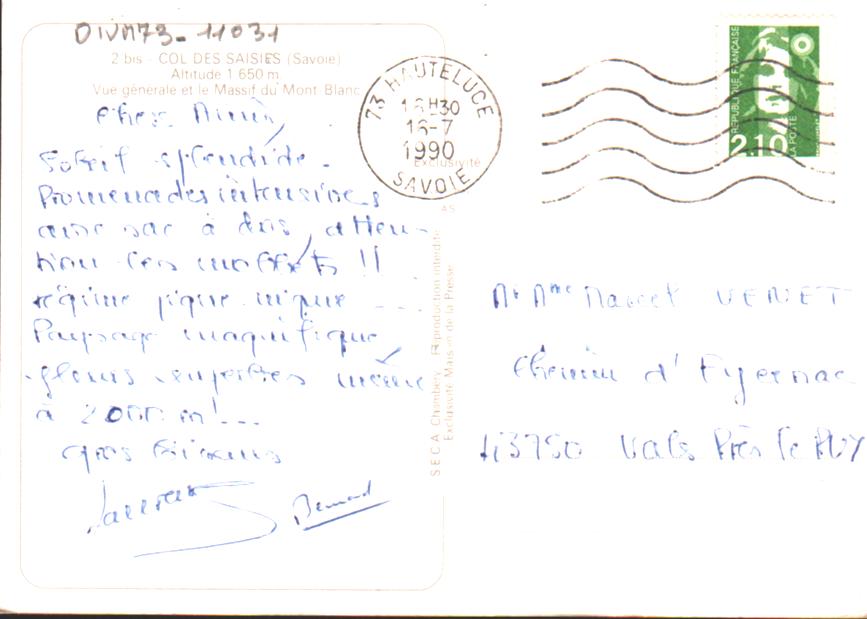 DIVM73-11031
2 bis - COL DES SAISIES (Savoie)
Altitude 1 650 m
Vue générale et le Massif du Mont Blanc
Soleil splendide.
Promenades intensives
avec sac à dos, atten-
tion les mollets !!
régime pique nique ...
Paysage magnifique
fleurs superbes même
à 2000 m!...
gros bisous
Bernard
73 HAUTELUCE
16H30
16-7
1990
SAVOIE
Exclusivité
AS
SECA Chambéry - Reproduction interdite
Exclusivité Maison de la Presse
RÉPUBLIQUE FRANÇAISE
2,10
LA POSTE
Mr Mme Marcel VERNET
Chemin d'Eycenac
43750 Vals Près le PUY